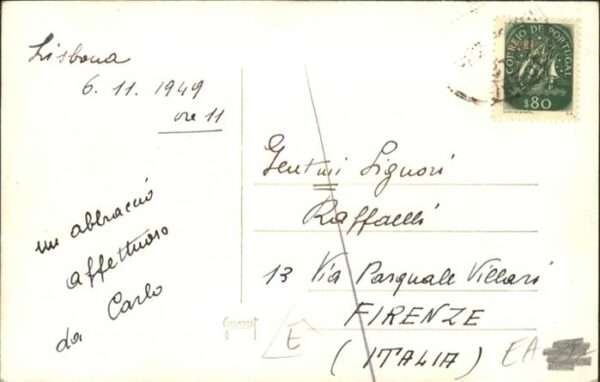 Lisbona
6. 11. 1949
ore 11
un abbraccio
affettuoso
da Carlo
CORREIO DE PORTUGAL
$80
Gentmi Signori
Raffaelli
13 Via Pasquale Villari
FIRENZE
(ITALIA)
E
EA